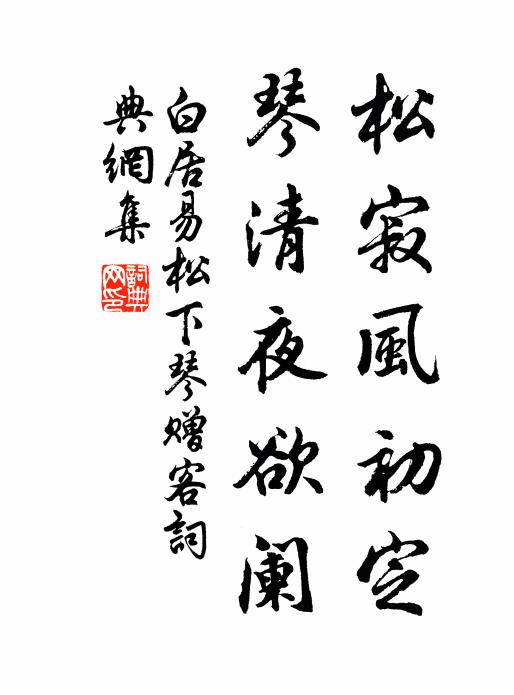 松寂風初定
琴清夜欲阑
白居易松下琴赠客詞
典網集
詞典
网印